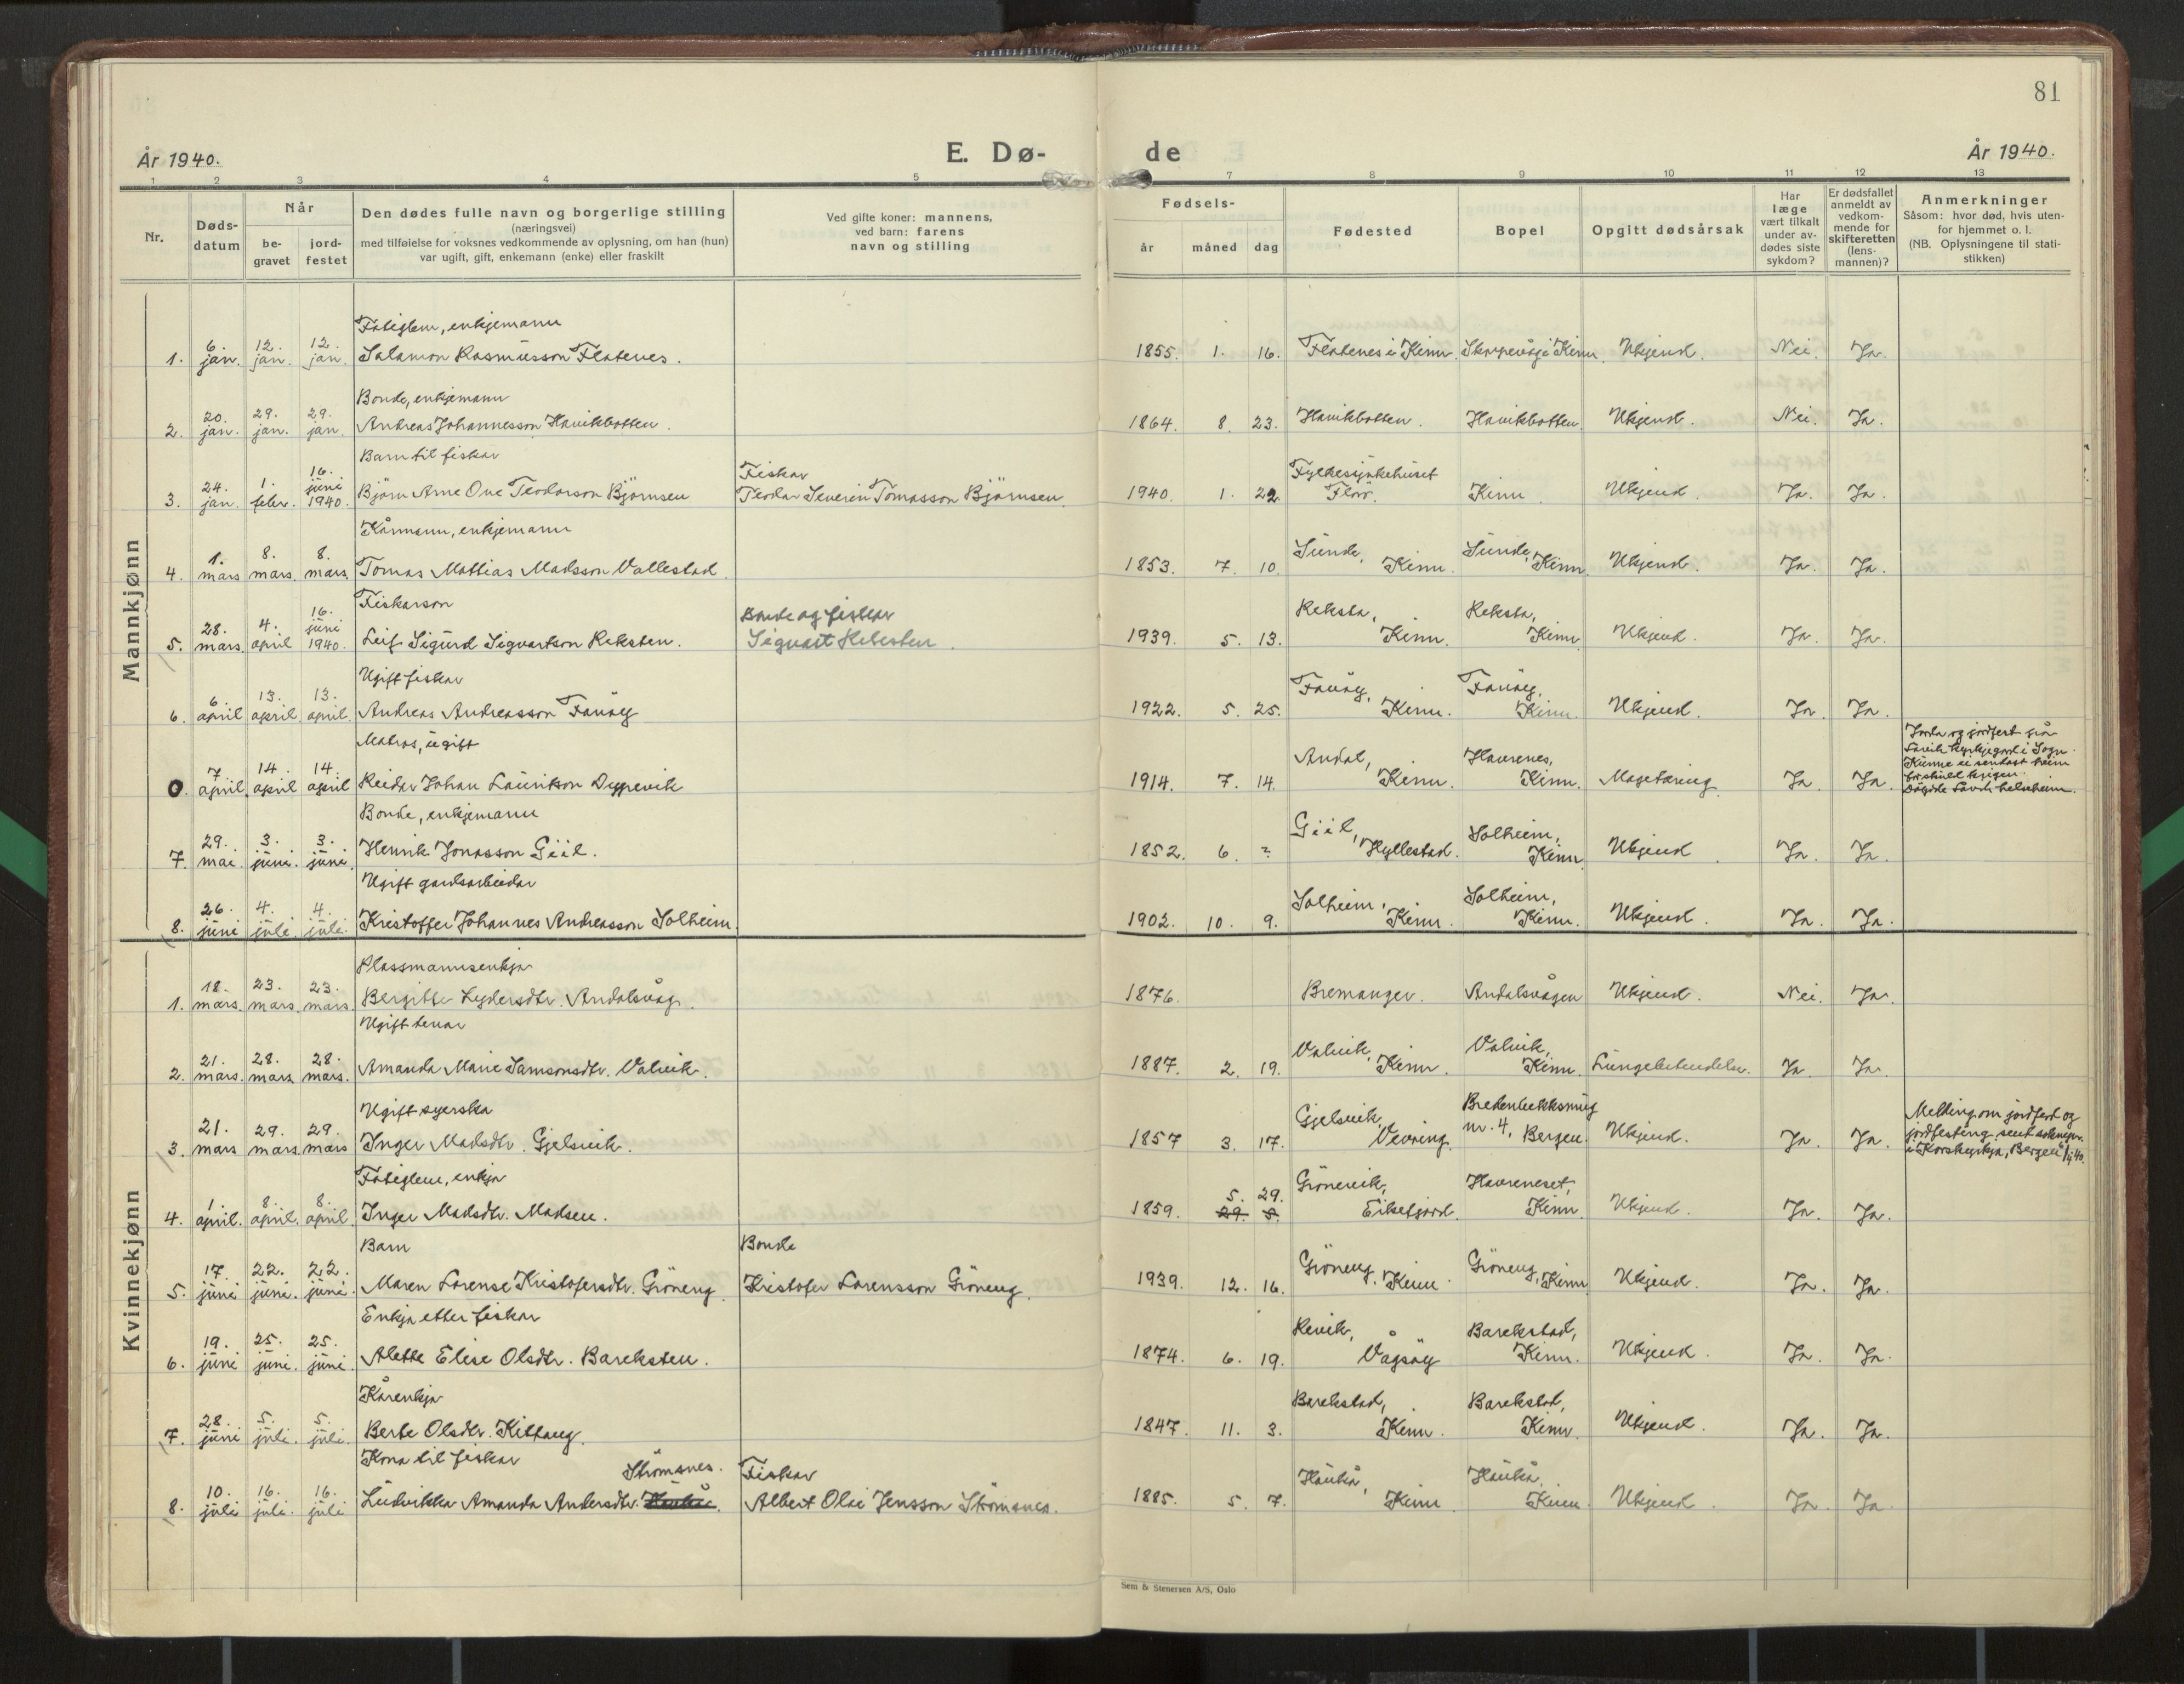 81
År 1940.
E. Dø-
de
År 1940.
1 2 3 4 5 7 8 9 10 11 12 13
Nr.
Døds-
datum
Når
be-
gravet
jord-
festet
Den dødes fulle navn og borgerlige stilling
(næringsvei)
med tilføielse for voksnes vedkommende av oplysning, om han (hun)
var ugift, gift, enkemann (enke) eller fraskilt
Ved gifte koner: mannens,
ved barn: farens
navn og stilling
Fødsels-
år måned dag
Fødested
Bopel
Opgitt dødsårsak
Har
læge
vært tilkalt
under av-
dødes siste
sykdom?
Er dødsfallet
anmeldt av
vedkom-
mende for
skifteretten
(lens-
mannen)?
Anmerkninger
Såsom: hvor død, hvis uten-
for hjemmet o. l.
(NB. Oplysningene til stati-
stikken)
Mannkjønn
Fatiglem, enkjemann
1. 6. jan. 12. jan. 12. jan. Salamon Rasmusson Flatenes. 1855. 1. 16. Flatenes i Kinn. Kinn. Ukjend. Nei. Ja.
Bonde, enkjemann
2. 20. jan. 29. jan. 29. jan. Andreas Johannesson Havikbotten. 1864. 8. 23. Havikbotten. Havikbotten. Ukjend. Nei. Ja.
Barn til fiskar
Fiskar
Fylkessjukehuset
3. 24. jan. 1. febr. 16. juni 1940. Bjørn Arne Ove Teodorson Bjørnsen Teodor Severin Tomasson Bjørnsen 1940. 1. 22. Florø. Kinn. Ukjend. Ja. Ja.
Kårmann, enkjemann
4. 1. mars 8. mars. 8. mars. Tomas Mattias Madsson Vallestad. 1853. 7. 10. Sunde, Kinn. Sunde, Kinn. Ukjend. Ja. Ja.
Fiskarson
Bonde og fiskar
5. 28. mars. 4. april 16. juni 1940. Leif Sigurd Sigvartson Reksten. Sigvart Reksten. 1939. 5. 13. Reksta, Kinn. Reksta, Kinn. Ukjend. Ja. Ja.
Ugift fiskar
6. 6. april 13. april. 13. april. Andreas Andreasson Fanøy 1922. 5. 25. Fanøy, Kinn. Fanøy, Kinn. Ukjend. Ja. Ja.
Matros, ugift
0. 7 april. 14. april 14. april Reidar Johan Lauritson Dyppevik 1914. 7. 14. Andal, Kinn. Havrenes, Kinn. Magetæring Ja. Ja. Jorda og jordfest på
kyrkjegard i Sogn.
Kunne ei sendast heim
krigen.
helseheim.
Bonde, enkjemann
7. 29. mai. 3. juni. 3. juni. Henrik Jonasson Giil. 1852. 6. ? Giil, Hyllestad. Solheim, Kinn Ukjend. Ja. Ja.
Ugift gardsarbeidar
8. 26. juni 4. juli. 4. juli. Kristoffer Johannes Andreasson Solheim. 1902. 10. 9. Solheim, Kinn. Solheim, Kinn. Ukjend. Ja. Ja.
Kvinnekjønn
Plassmannsenkja
1. 18. mars. 23. mars. 23. mars. Bergitte Lydersdtr. Andalsvåg. 1876. Bremanger. Andalsvågen Ukjend. Nei. Ja.
Ugift tenar
2. 21. mars. 28. mars. 28. mars. Amanda Marie Samsonsdtr. Valvik. 1887. 2. 19. Valvik, Kinn. Valvik, Kinn. Lungebetendelse. Ja. Ja.
Ugift syerska
3. 21. mars 29. mars. 29. mars Inger Madsdtr. Gjelsvik. 1857 3. 17. Gjelsvik, Vevring. nr. 4, Bergen. Ukjend. Ja. Ja. Melding om jordferd og
jordfesting sent
i Korskyrkja, Bergen
Fatiglem, enkja
4. 1. april. 8. april. 8. april. Inger Madsdtr. Madsen. 1859. 5. 29. 29. 8. Grønevik, Eikefjord. Havreneset, Kinn. Ukjend. Ja. Ja.
Barn
Bonde
5. 17. juni 22. juni. 22. juni. Maren Lorense Kristofersdtr. Grøneng. Kristofer Lorensson Grøneng. 1939. 12. 16. Grøneng, Kinn. Grøneng, Kinn Ukjend. Ja. Ja.
Enkja etter fiskar
6. 19. juni 25. juni. 25. juni. Alette Elise Olsdtr. Bareksten. 1874. 6. 19. Revik, Vågsøy Barekstad, Kinn. Ukjend. Ja. Ja.
Kårenkja
7. 28. juni 5. juli. 5. juli. Berte Olsdtr. Kittang. 1847. 11. 3. Barekstad, Kinn. Barekstad, Kinn. Ukjend. Ja. Ja.
Kona til fiskar
Strømsnes.
Fiskar
8. 10. juli 16. juli. 16. juli Ludvikka Amanda Andersdtr. Albert Olai Jensson Strømsnes. 1885. 5. 7. Haukå, Kinn Haukå, Kinn Ukjend. Ja. Ja.
Sem & Stenersen A/S, Oslo